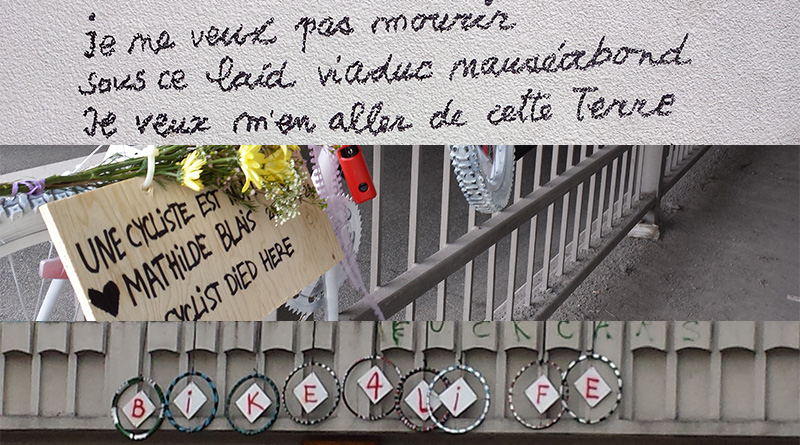 je ne veux pas mourir
sous ce laid viaduc nauséabond
Je veux m'en aller de cette Terre
UNE CYCLISTE EST
♥ MATHILDE BLAIS
CYCLIST DIED HERE
FUCK CARS
BiKE 4 LiFE